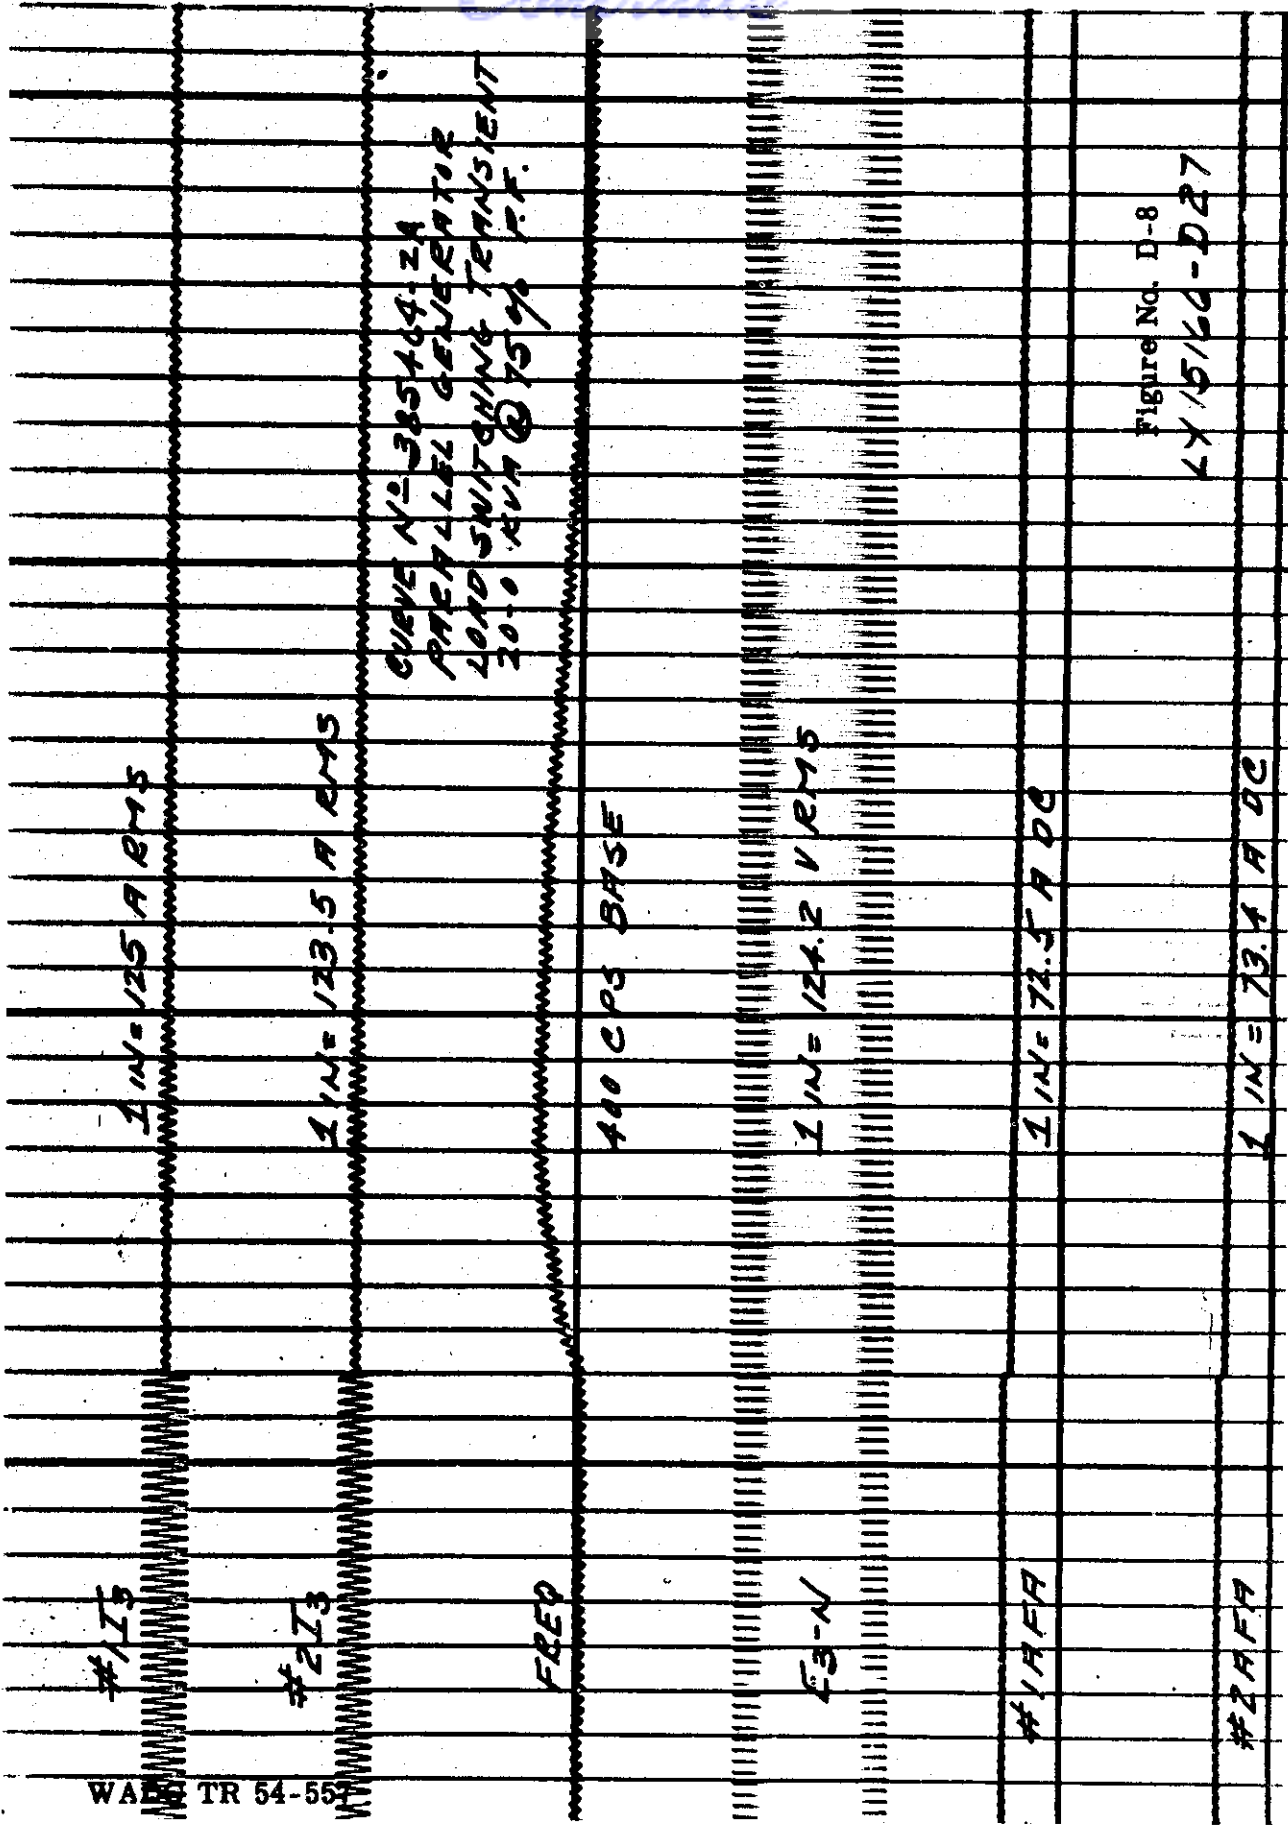 #1 I3
1 IN = 125 A RMS
#2 I3
1 IN = 123.5 A RMS
CURVE Nº 385464-2A
PARALLEL GENERATOR
LOAD SWITCHING TRANSIENT
20-0 KVA @ 75 % P.F.
FREQ
400 CPS BASE
E3-N
1 IN = 124.2 V RMS
#1 AFA
1 IN = 72.5 A DC
Figure No. D-8
LY15166-D27
#2 AFA
1 IN = 73.4 A DC
TR 54-557